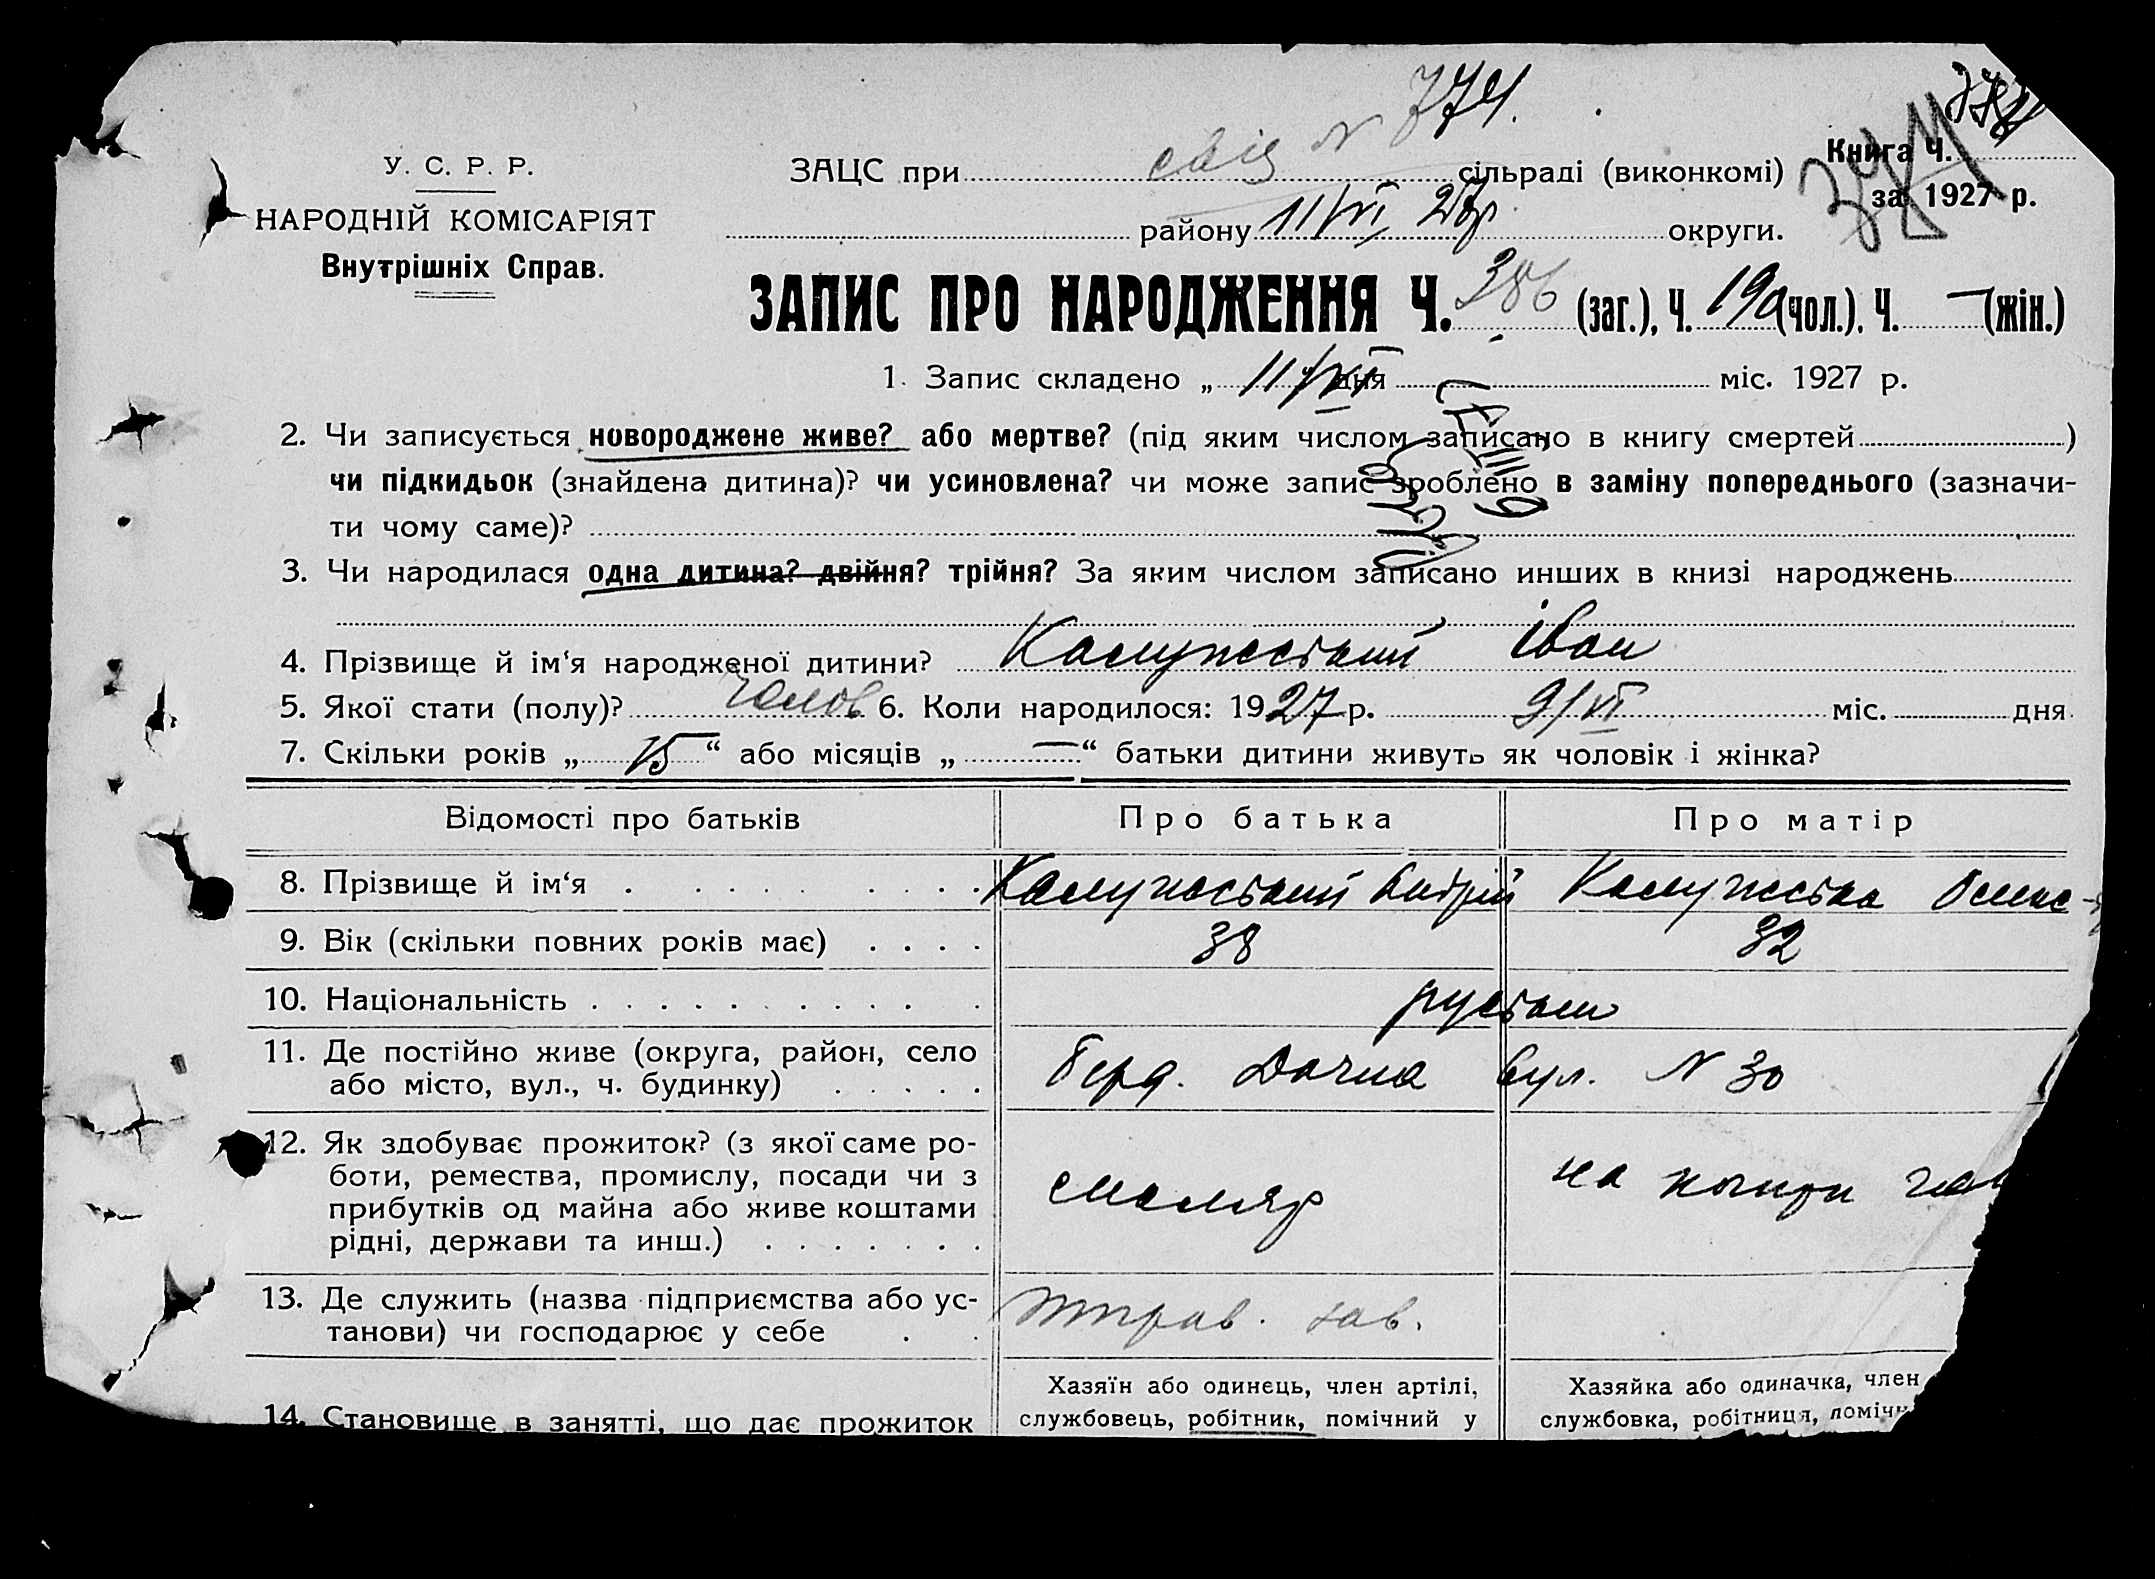 774.
свід N
У. С. Р. Р.
НАРОДНІЙ КОМІСАРІЯТ
Внутрішніх Справ.
ЗАЦС при сільраді (виконкомі)
району 11/VI 27р. округи.
Книга Ч.
за 1927 р.
374
ЗАПИС ПРО НАРОДЖЕННЯ Ч. 386 (заг.), Ч. 190 (чол.), Ч. — (жін.)
1. Запис складено „ 11/VI " дня міс. 1927 р.
2. Чи записується новороджене живе? або мертве? (під яким числом записано в книгу смертей )
чи підкидьок (знайдена дитина)? чи усиновлена? чи може запис зроблено в заміну попереднього (зазначи-
ти чому саме)?
3. Чи народилася одна дитина? двійня? трійня? За яким числом записано инших в книзі народжень
4. Прізвище й ім'я народженої дитини? Калужський Іван
5. Якої стати (полу)? чолов 6. Коли народилося: 1927 р. 9/VI міс. дня.
7. Скільки років „ 15 “ або місяців „ — “ батьки дитини живуть як чоловік і жінка?
Відомості про батьків Про батька Про матір
8. Прізвище й ім‘я Калужський Андрій Калужська Олекс-
9. Вік (скільки повних років має) 38 32
10. Національність руськи
11. Де постійно живе (округа, район, село
або місто, вул., ч. будинку)
Берд. Дачна вул. N 30
12. Як здобуває прожиток? (з якої саме ро-
боти, ремества, промислу, посади чи з
прибутків од майна або живе коштами
рідні, держави та инш.)
смоляр
на
13. Де служить (назва підприємства або ус-
танови) чи господарює у себе
зав.
14. Становище в занятті, що дає прожиток
Хазяїн або одинець, член артілі,
службовець, робітник, помічний у
Хазяйка або одиначка, член
службовка, робітниця, поміч